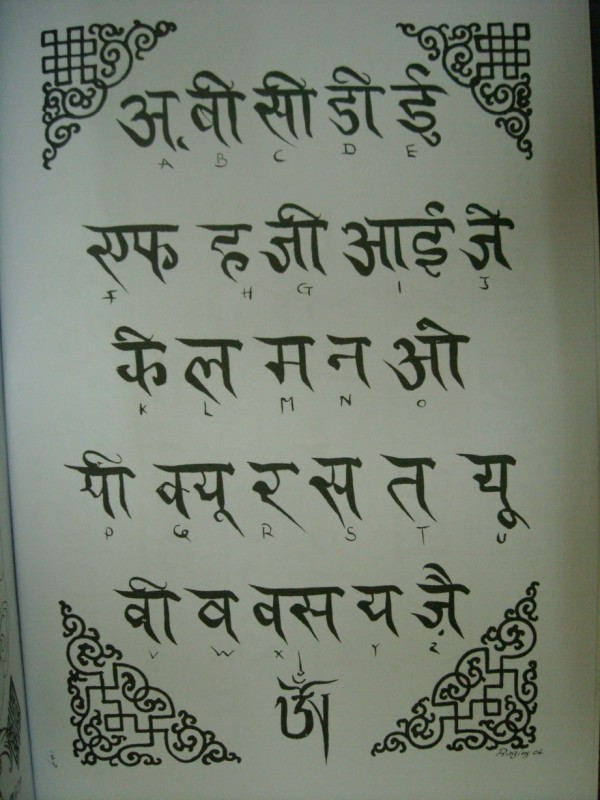 अ बी सी डी ई
A B C D E
एफ ह जी आई जे
F H G I J
के ल म न ओ
K L M N O
पी क्यू र स त यू
P Q R S T U
वी व वस य जै
V W X Y Z
ॐ